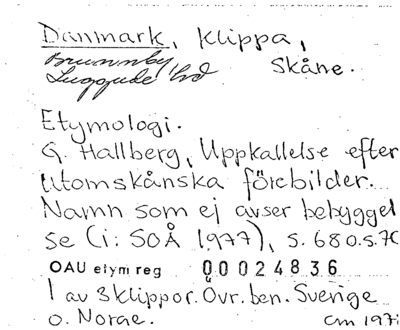 Danmark, Klippa,
Brunnby
Luggude hd
Skåne.
Etymologi.
G. Hallberg, Uppkallelse efter
utomskånska förebilder.
Namn som ej avser bebyggel
se (i: SOÅ 1977), s. 68 o. s. 70
OAU etym reg 00024836
1 av 3 klippor. Övr. ben. Sverige
o. Norge.